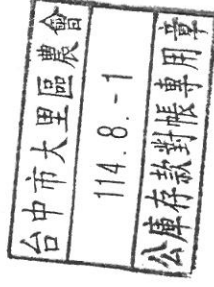 台中市大里區農會
114.8.-1
公庫存款對帳專用章